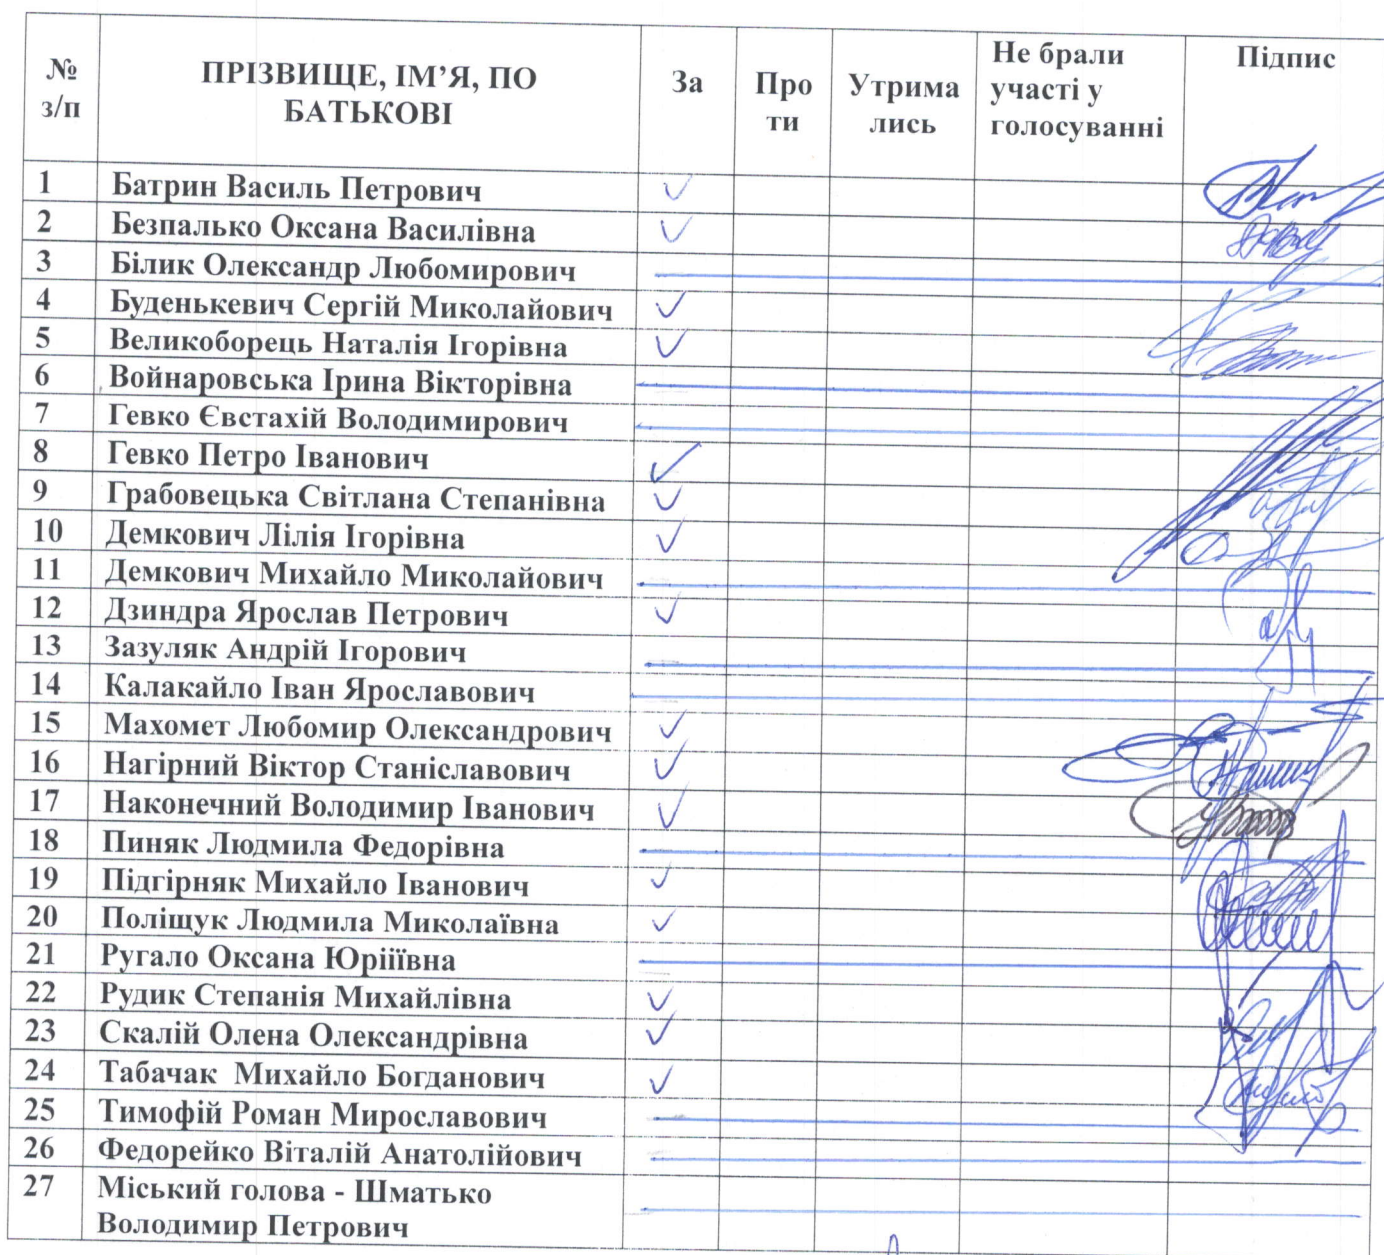 №
з/п
ПРІЗВИЩЕ, ІМ’Я, ПО
БАТЬКОВІ
За
Про
ти
Утрима
лись
Не брали
участі у
голосуванні
Підпис
1 Батрин Василь Петрович
2 Безпалько Оксана Василівна
3 Білик Олександр Любомирович
4 Буденькевич Сергій Миколайович
5 Великоборець Наталія Ігорівна
6 Войнаровська Ірина Вікторівна
7 Гевко Євстахій Володимирович
8 Гевко Петро Іванович
9 Грабовецька Світлана Степанівна
10 Демкович Лілія Ігорівна
11 Демкович Михайло Миколайович
12 Дзиндра Ярослав Петрович
13 Зазуляк Андрій Ігорович
14 Калакайло Іван Ярославович
15 Махомет Любомир Олександрович
16 Нагірний Віктор Станіславович
17 Наконечний Володимир Іванович
18 Пиняк Людмила Федорівна
19 Підгірняк Михайло Іванович
20 Поліщук Людмила Миколаївна
21 Ругало Оксана Юріііївна
22 Рудик Степанія Михайлівна
23 Скалій Олена Олександрівна
24 Табачак Михайло Богданович
25 Тимофій Роман Мирославович
26 Федорейко Віталій Анатолійович
27 Міський голова - Шматько
Володимир Петрович